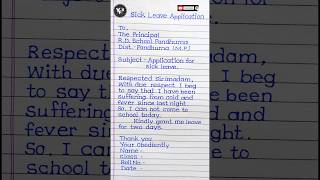 Sick Leave Application
To,
The Principal
R.D. School Pandhurna
Dist. Pandhurna (M.P.)
Subject:- Application for
sick leave.
Respected Sir/Madam,
With due respect I beg
to say that I have been
suffering from cold and
fever since last night.
So, I can not come to
school today.
Kindly grant me leave
for two days.
Thank you
Your Obediently
Name -
Class -
Roll No. -
Date -